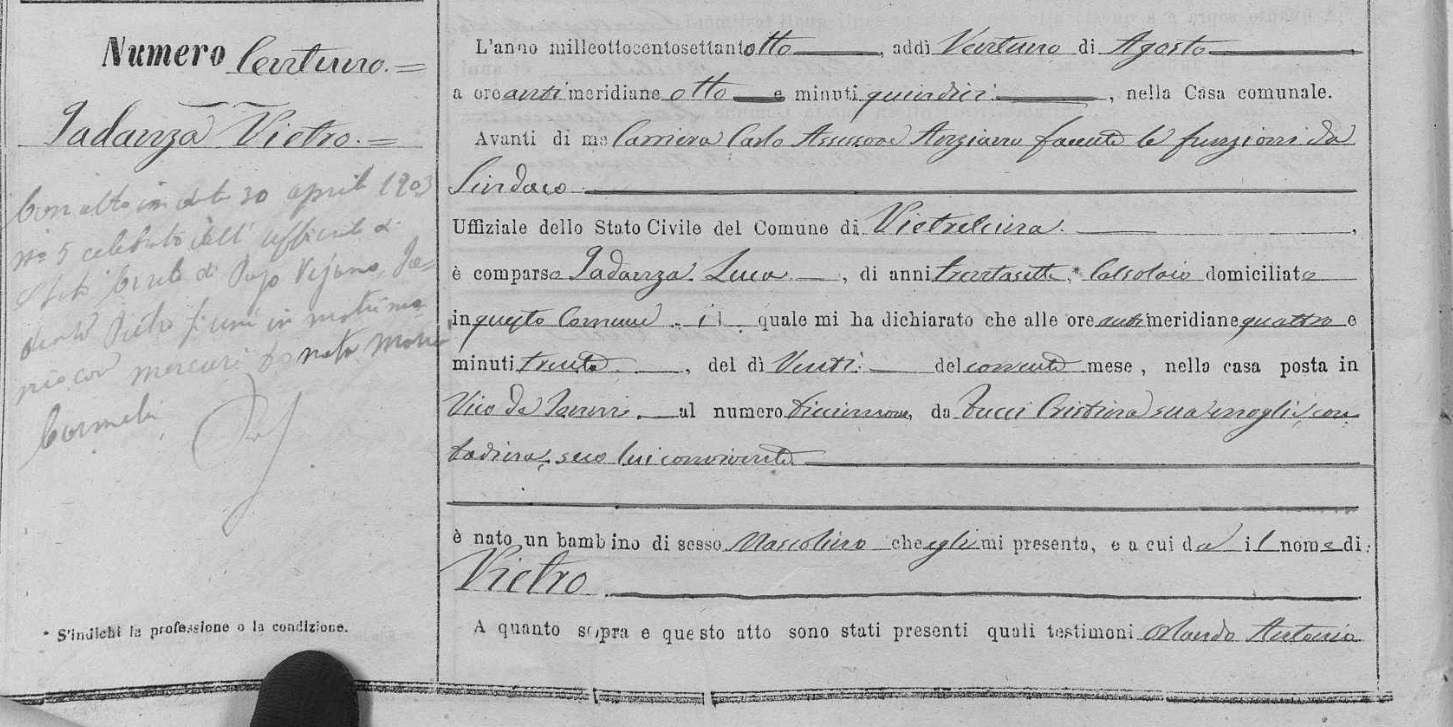 Numero Centuno.=
Iadanza Pietro.=
Con atto in data 30 aprile 1903
nº 5 celebrato dall' ufficiale di
Stato Civile di Pago Vejano, Ia-
danza Pietro si unì in matrimo
nio con Mercuri Donata Maria
Carmela
* S'indichi la professione o la condizione.
L'anno milleottocentosettantotto, addì Ventuno di Agosto,
a ore antimeridiane otto e minuti quindici, nella Casa comunale.
Avanti di me Carriera Carlo Assessore Anziano facente le funzioni da
Sindaco
Uffiziale dello Stato Civile del Comune di Pietrelcina.
è comparso Iadanza Luca, di anni trentasette,* Calsolaio domiciliato
in questo Comune il quale mi ha dichiarato che alle ore antimeridiane quattro e
minuti trenta, del dì Venti del corrente mese, nella casa posta in
Vico da al numero diecinnove, da Tucci Cristina sua moglie, con
tadina, seco lui convivente
è nato un bambino di sesso Mascolino che egli mi presenta, e a cui dà il nome di
Pietro
A quanto sopra e questo atto sono stati presenti quali testimoni Orlando Antonio